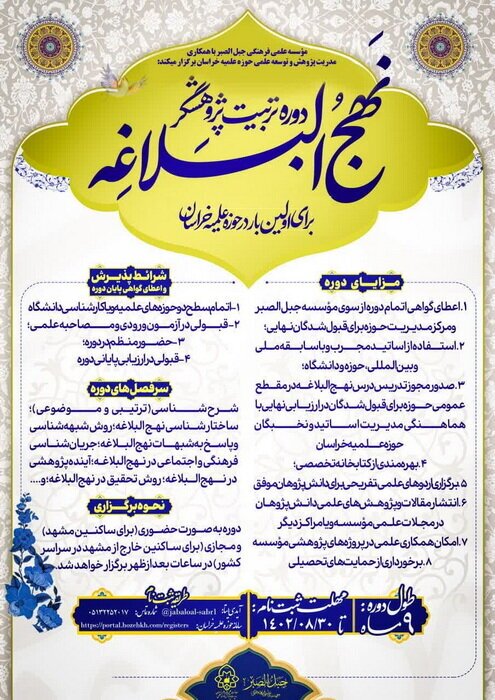 مؤسسه علمی فرهنگی جبل الصبر با همکاری
مدیریت پژوهش و توسعه علمی حوزه علمیه خراسان برگزار میکند:
دوره تربیت پژوهشگر
نهج البلاغه
برای اولین بار در حوزه علمیه خراسان
مزایای دوره
۱.اعطای گواهی اتمام دوره از سوی مؤسسه جبل الصبر
و مرکز مدیریت حوزه برای قبول شدگان نهایی؛
۲.استفاده از اساتید مجرب و با سابقه ملی
و بین المللی، حوزه و دانشگاه؛
۳.صدور مجوز تدریس درس نهج البلاغه در مقطع
عمومی حوزه برای قبول شدگان در ارزیابی نهایی با
هماهنگی مدیریت اساتید و نخبگان
حوزه علمیه خراسان
۴.بهره مندی از کتابخانه تخصصی؛
۵.برگزاری اردوهای علمی تفریحی برای دانش پژوهان موفق
۶.انتشار مقالات و پژوهش های علمی دانش پژوهان
در مجلات علمی مؤسسه و یا مراکز دیگر
۷.امکان همکاری علمی در پروژه های پژوهشی مؤسسه
۸.برخورداری از حمایت های تحصیلی
شرائط پذیرش
و اعطای گواهی پایان دوره
۱-اتمام سطح دو حوزه های علمیه و یا کارشناسی دانشگاه
۲-قبولی در آزمون ورودی و مصاحبه علمی؛
۳-حضور منظم در دوره؛
۴-قبولی در ارزیابی پایانی دوره
سرفصل های دوره
شرح شناسی (ترتیبی و موضوعی)؛
ساختارشناسی نهج البلاغه؛ روش شبهه شناسی
و پاسخ به شبهات نهج البلاغه؛ جریان شناسی
فرهنگی و اجتماعی در نهج البلاغه؛ آینده پژوهشی
در نهج البلاغه؛ روش تحقیق در نهج البلاغه؛ و....
نحوه برگزاری
دوره به صورت حضوری (برای ساکنین مشهد)
و مجازی (برای ساکنین خارج از مشهد در سراسر
کشور) در ساعات بعد از ظهر برگزار خواهد شد.
طول دوره:
۹ ماه
مهلت ثبت نام:
تا ۱۴۰۲/۰۸/۳۰
طریقه ثبت نام
آیدی ایتا: @jabaloal-sabr1 شماره تماس: ۰۵۱۳۲۲۵۲۰۱۷
سامانه حوزه علمیه خراسان: https://portal.hozehkh.com/registers
جبل الصبر